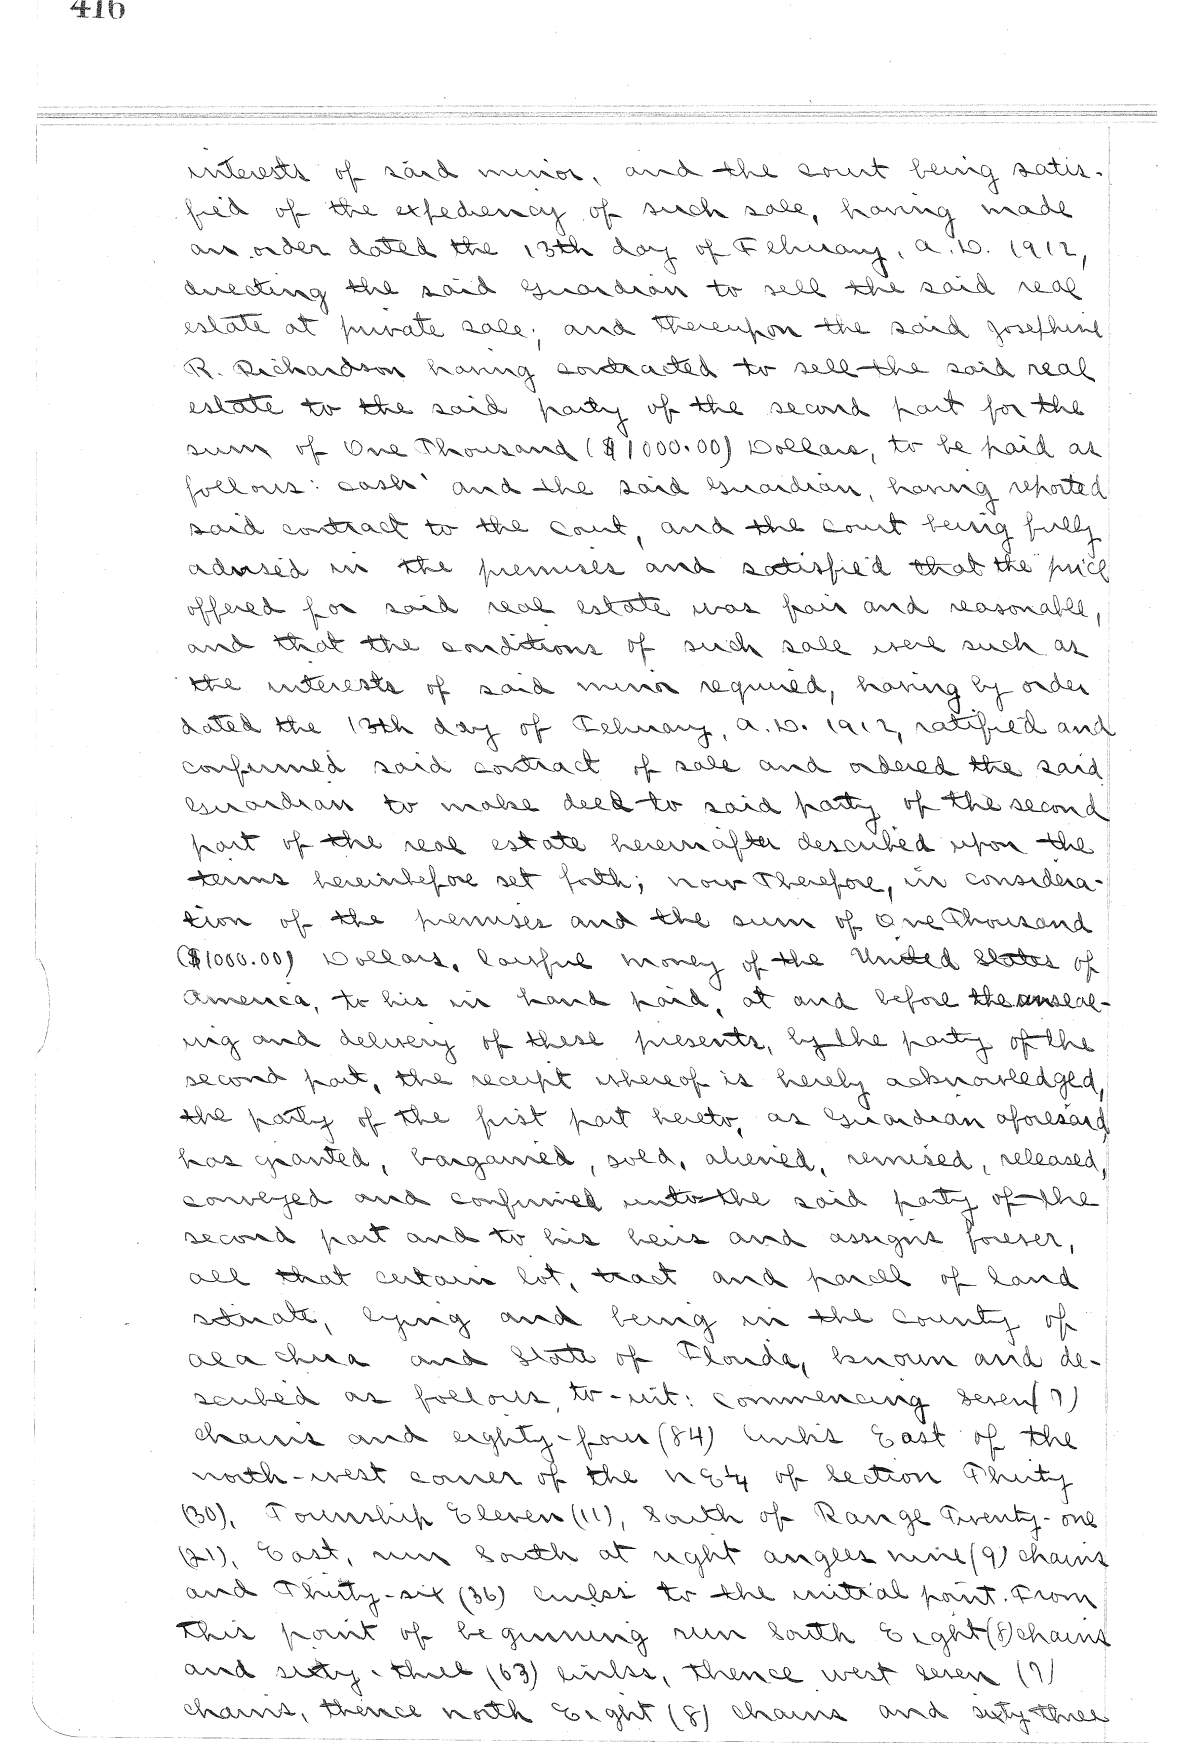 416
interests of said minor, and the court being satis-
fied of the expediency of such sale, having made
an order dated the 13th day of February, A.D. 1912,
directing the said Guardian to sell the said real
estate at private sale; and thereupon the said Josephine
R. Richardson having contracted to sell the said real
estate to the said party of the second part for the
sum of One Thousand ($1000.00) Dollars, to be paid as
follows: cash' and the said Guardian, having reported
said contract to the court, and the court being fully
advised in the premises and satisfied that the price
offered for said real estate was fair and reasonable,
and that the conditions of such sale were such as
the interests of said minor required, having by order
dated the 13th day of February, A.D. 1912, ratified and
confirmed said contract of sale and ordered the said
Guardian to make deed to said party of the second
part of the real estate hereinafter described upon the
terms hereinbefore set forth; now Therefore, in considera-
tion of the premises and the sum of One Thousand
($1000.00) Dollars, lawful money of the United States of
America, to his in hand paid, at and before the unseal-
ing and delivery of these presents, by the party of the
second part, the receipt whereof is hereby acknowledged,
the party of the first part hereto, as Guardian aforesaid
has granted, bargained, sold, aliened, remised, released,
conveyed and confirmed unto the said party of the
second part and to his heirs and assigns forever,
all that certain lot, tract and parcel of land
situate, lying and being in the County of
Alachua and State of Florida, known and de-
scribed as follows, to-wit: Commencing Seven (7)
chains and eighty-four (84) links East of the
north-west corner of the NE¼ of Section Thirty
(30), Township Eleven (11), South of Range Twenty-one
(21), East, run South at right angles nine (9) chains
and Thirty-six (36) links to the initial point. From
this point of beginning run South Eight (8) chains
and sixty-three (63) links, thence west seven (7)
chains, thence north Eight (8) chains and sixty three